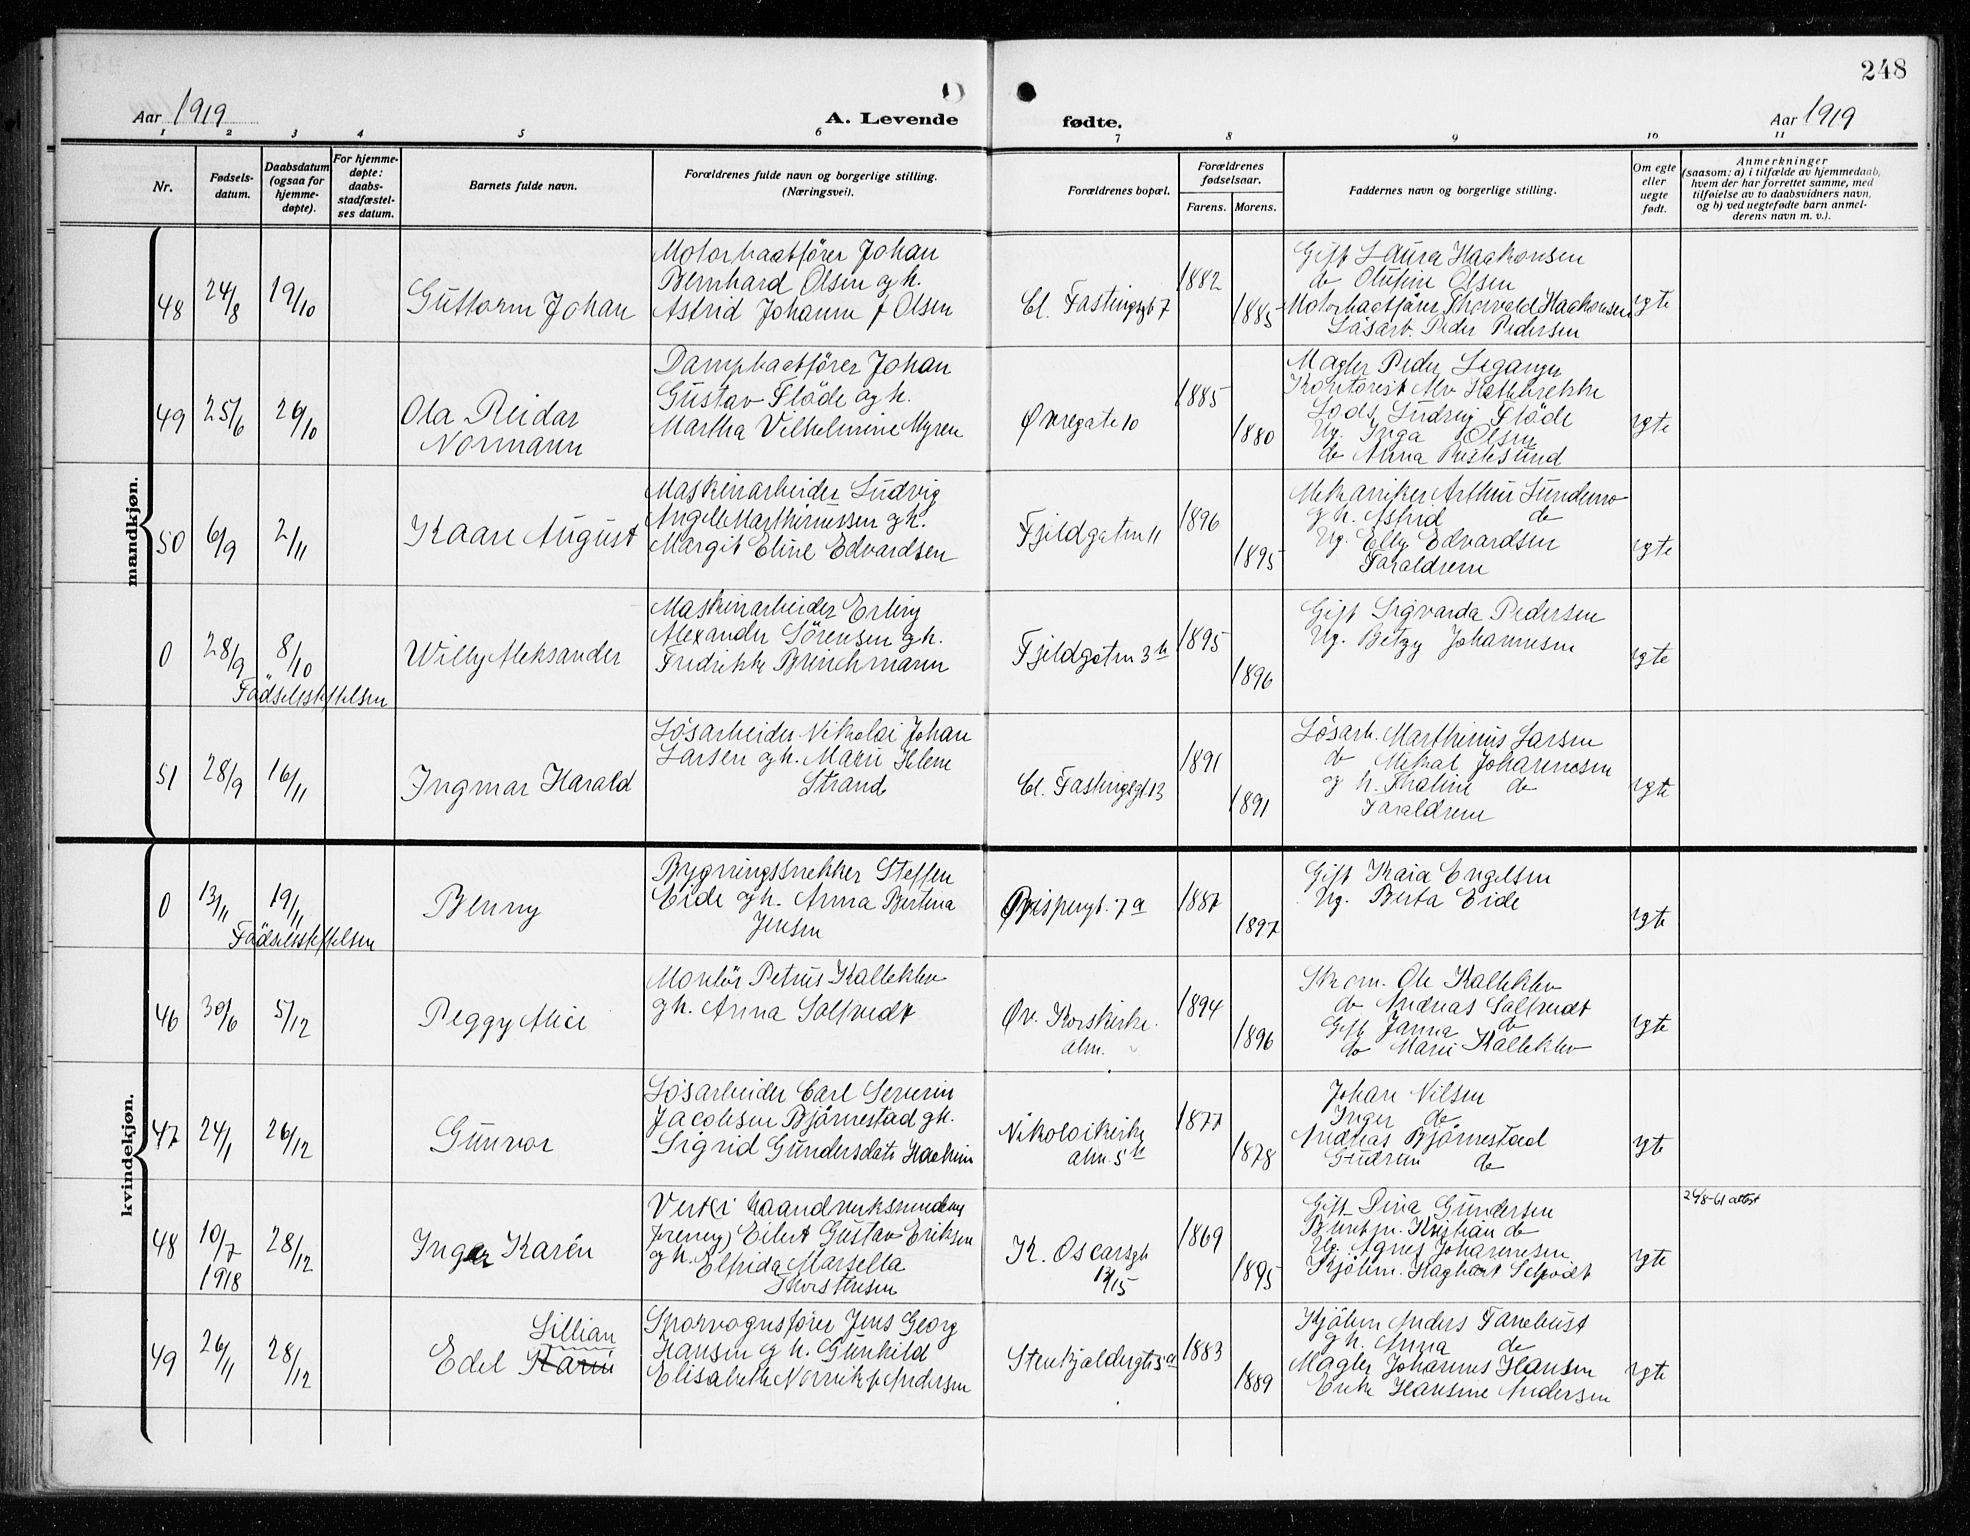 248
Aar 1919
A. Levende
fødte.
Aar 1919
1 2 3 4 5 6 7 8 9 10 11
Nr.
Fødsels-
datum.
Daabsdatum
(ogsaa for
hjemme-
døpte).
For hjemme-
døpte:
daabs-
stadfæstel-
ses datum.
Barnets fulde navn.
Forældrenes fulde navn og borgerlige stilling.
(Næringsvei).
Forældrenes bopæl.
Forældrenes
fødselsaar.
Farens. Morens.
Faddernes navn og borgerlige stilling.
Om egte
eller
uegte
født.
Anmerkninger
(saasom: a) i tilfælde av hjemmedaab,
hvem der har forrettet samme, med
tilføielse av to daabsvidners navn,
og b) ved uegtefødte barn anmel-
derens navn m. v.).
mandkjøn.
48 24/8 19/10
Guttorm Johan
Motorbaatfører Johan
Bernhard Olsen og h.
Astrid Johanne f Olsen
Cl. Fastingsgt 7
1882
1885
Gift Laura Haakonsen
do Olufine Olsen
Motorbaatfører Thorvald Haakonsen
Løsarb. Peder Pedersen
egte
49 25/6 26/10
Ola Reidar
Normann
Dampbaatfører Johan
Gustav Fløde og h.
Martha Vilhelmine Myren
Øvregate 10
1885
1880
Mægler Peder
Kontorist Alv
Lods Ludvig Fløde
Ug. Inga Olsen
do Anna
egte
50 6/9 2/11
Kaare August
Maskinarbeider Ludvig
Angel Marthinussen og h.
Margit Eline Edvardsen
Fjeldgaten 11
1896
1895
Mekaniker Arthur
og h. Astrid do
Ug. Elly Edvardsen
Faraldrene
egte
0 28/9 8/10
Fødselsstiftelsen
Willy Aleksander
Maskinarbeider Erling
Alexander Sørensen og h.
Fredrikke Brinchmann
Fjeldgaten 3 b
1895
1896
Gift Sigvarda Pedersen
Ug. Betzy Johannesen
egte
51 28/9 16/11
Ingmar Harald
Løsarbeider Nikolai Johan
Larsen og h. Marie Helene
Strand
Cl. Fastingsgt. 13
1891
1891
Løsarb. Marthinius Larsen
do Mekal Johannesen
og h. Thaline do
Faraldrene
egte
kvindekjøn.
0 13/11 19/11
Fødselsstiftelsen
Benny
Bygningssnekker Steffen
Eide og h. Anna Bertina
Jensen
7 a
1887
1897
Gift Kaia Engelsen
Ug. Berta Eide
egte
46 30/6 5/12
Peggy Alice
Montør Petrus Kalleklev
og h. Anna Soltvedt
Øv. Korskirke.
alm.
1894
1896
Skom. Ole Kalleklev
do Andreas Soltvedt
Gift Janna do
do Marie Kalleklev
egte
47 24/1 26/12
Gunvor
Løsarbeider Carl Severin
Jacobsen Bjørnestad og h.
Sigrid Gundersdatr
Nikolaikirke
alm. 5 b
1877
1878
Johan Nilsen
Inger do
Andreas Bjørnestad
Gudrun do
egte
48 10/7 1918 28/12
Inger Karin
Vert (i haandverkssvendenes
forening) Eilert Gustav Eriksen
og h. Elfrida Marsella
Thorstensen
K. Oscarsgt
13/15
1869
1895
Gift Dina Gundersen
Kristian do
Ug. Agnes Johannesen
Kjøbm. Hagbart
egte
26/8-61 attest
49 26/11 28/12
Lillian
Edel Karin
Sporvognsfører Jens Georg
Hansen og h. Gunhild
Elisabeth Norvik f Andersen
Stenkjeldergt 5 a
1883
1889
Kjøbm Anders Fanehust
og h. Anna do
Mægler Johannes Hansen
Enke Hansine Andersen
egte